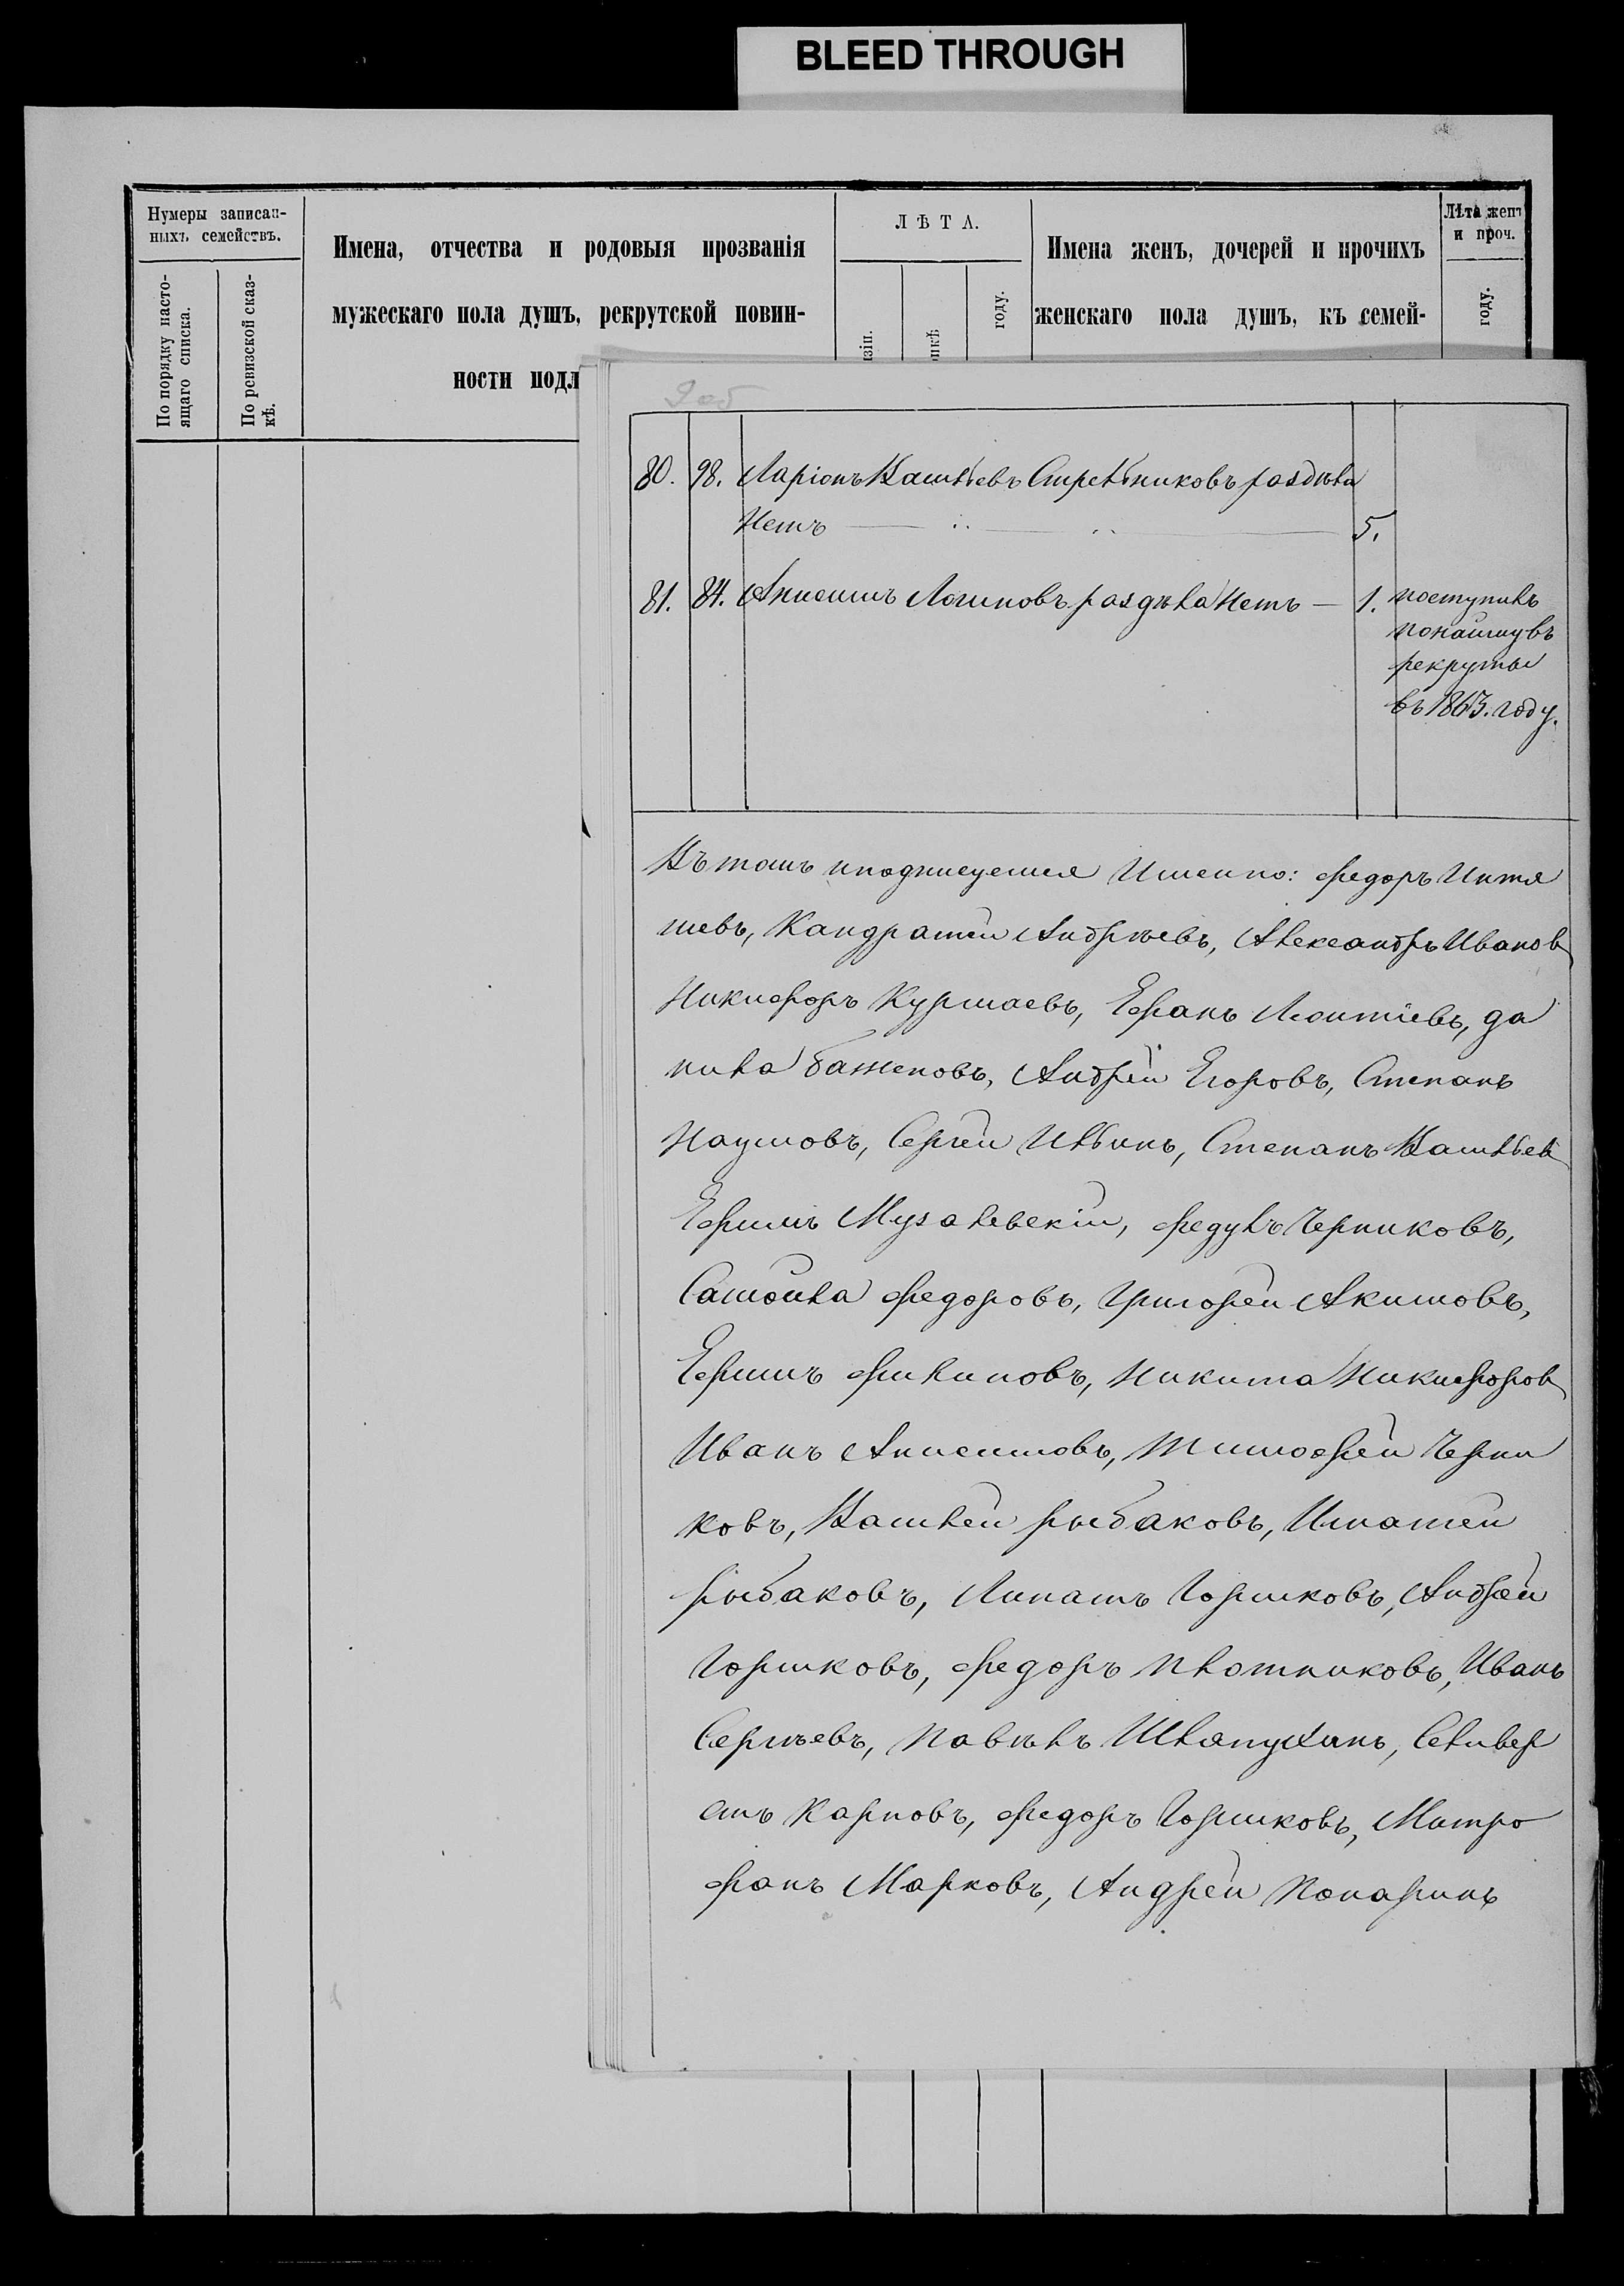 BLEED THROUGH
Нумеры записан-
ныхъ семействъ.
По порядку насто-
ящаго списка.
По ревизской сказ-
кѣ.
Имена, отчества и родовыя прозванія
мужескаго пола душъ, рекрутской повин-
ности подл
ЛѢТА.
году.
Имена женъ, дочерей и прочихъ
женскаго пола душъ, къ семей-
Лѣта женъ
и проч.
году.
9 об
80. 98. Ларіонъ Васильевъ Стрельниковъ раздѣла
Нетъ 5.
81. 84. Анисимъ Логиновъ раздѣла Нетъ — 1. поступилъ
понайму въ
рекруты
въ 1863. году.
Въ томъ иподписуемся Именно: федоръ Интя
шевъ, Кандратей Андрѣевъ, Александръ Иванов
Никифоръ Курмаевъ, Ефанъ Леонтіевъ, да
нила баженовъ, Андрей Егоровъ, Степанъ
Наумовъ, Сергей Ильинъ, Степанъ Васильев
Ефимъ Музалевскій, федулъ Черниковъ,
Самойла федоровъ, Григорей Акимовъ,
Ефимъ филиповъ, Никита Никифоров
Иванъ Анисимовъ, Тимофей Черни
ковъ, Василей рыбаковъ, Игнатей
рыбаковъ, Липатъ Горшковъ, Андрей
Горшковъ, федоръ Плотниковъ, Иванъ
Сергѣевъ, Павѣлъ Шляпухинъ, Селивер
стъ Карповъ, федоръ Горшковъ, Митро
фанъ Марковъ, Андрей Понаринъ